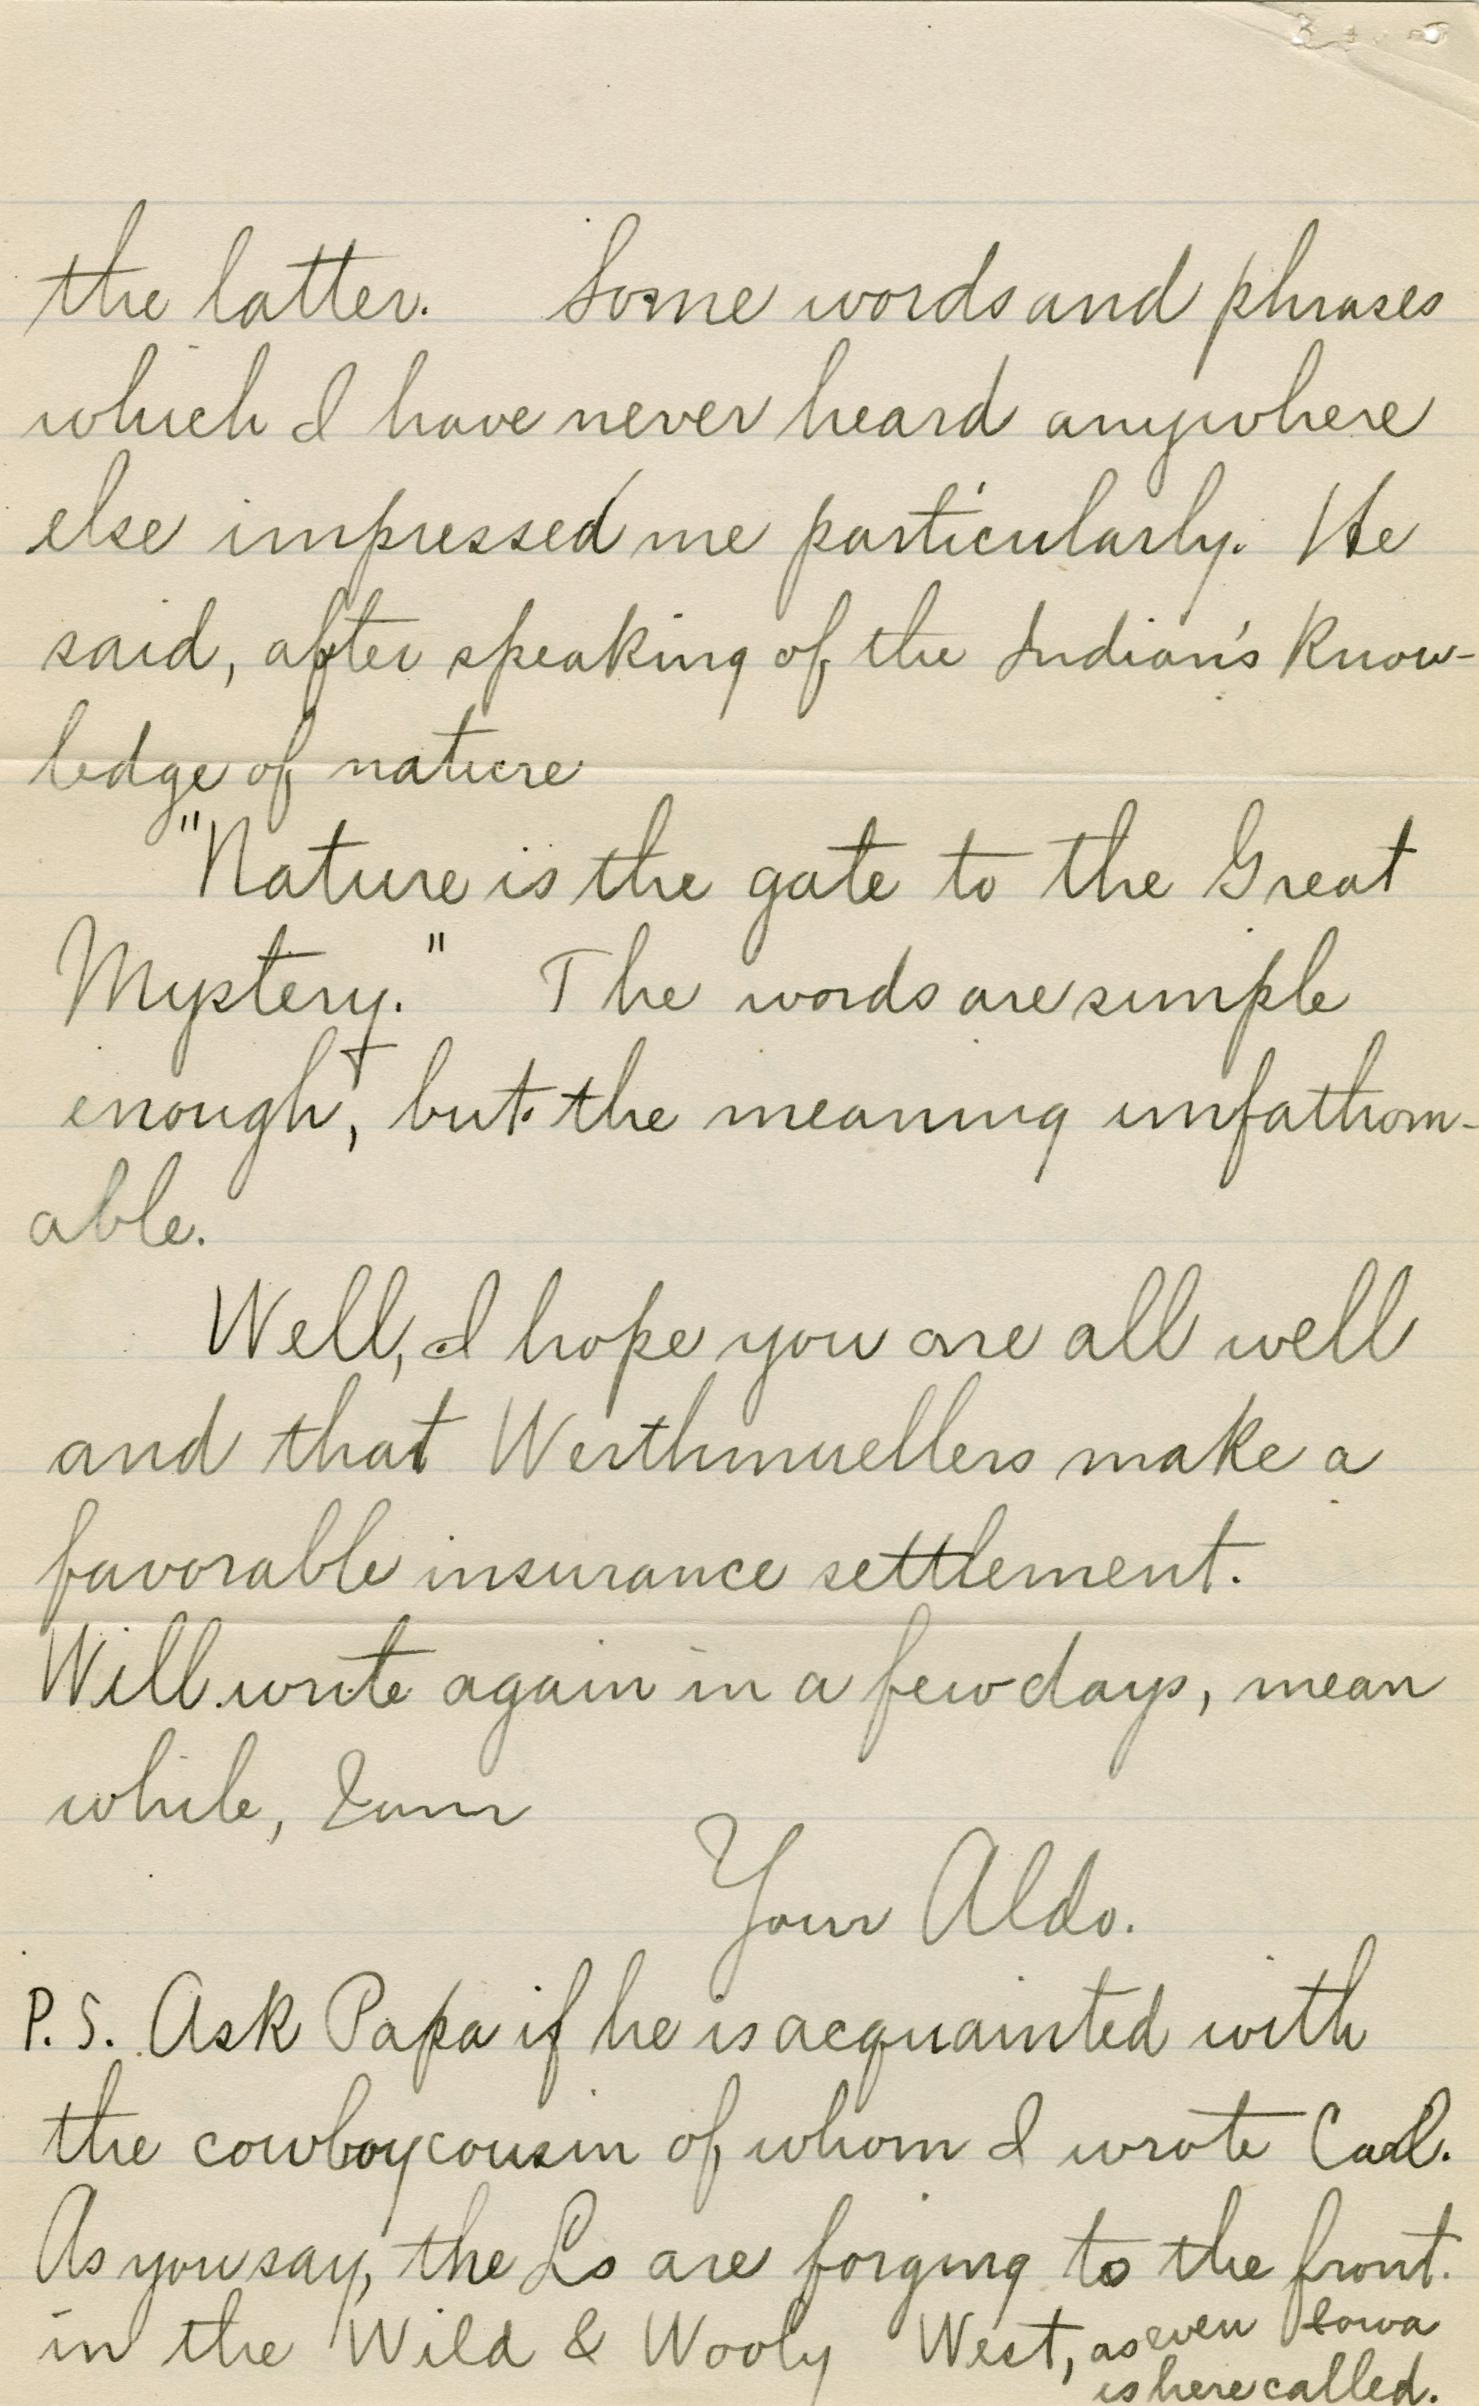 the latter. Some words and phrases
which I have never heard anywhere
else impressed me particularly. He
said, after speaking of the Indian's know-
ledge of nature
"Nature is the gate to the Great
Mystery." The words are simple
enough, but the meaning unfathom-
able.
Well, I hope you are all well
and that Werthmuellers make a
favorable insurance settlement.
Will write again in a few days, mean
while, I am
Your Aldo.
P.S. Ask Papa if he is acquainted with
the cowboy cousin of whom I wrote Carl.
As you say, the Ls are forging to the front.
in the Wild & Wooly West, as even Iowa
is here called.